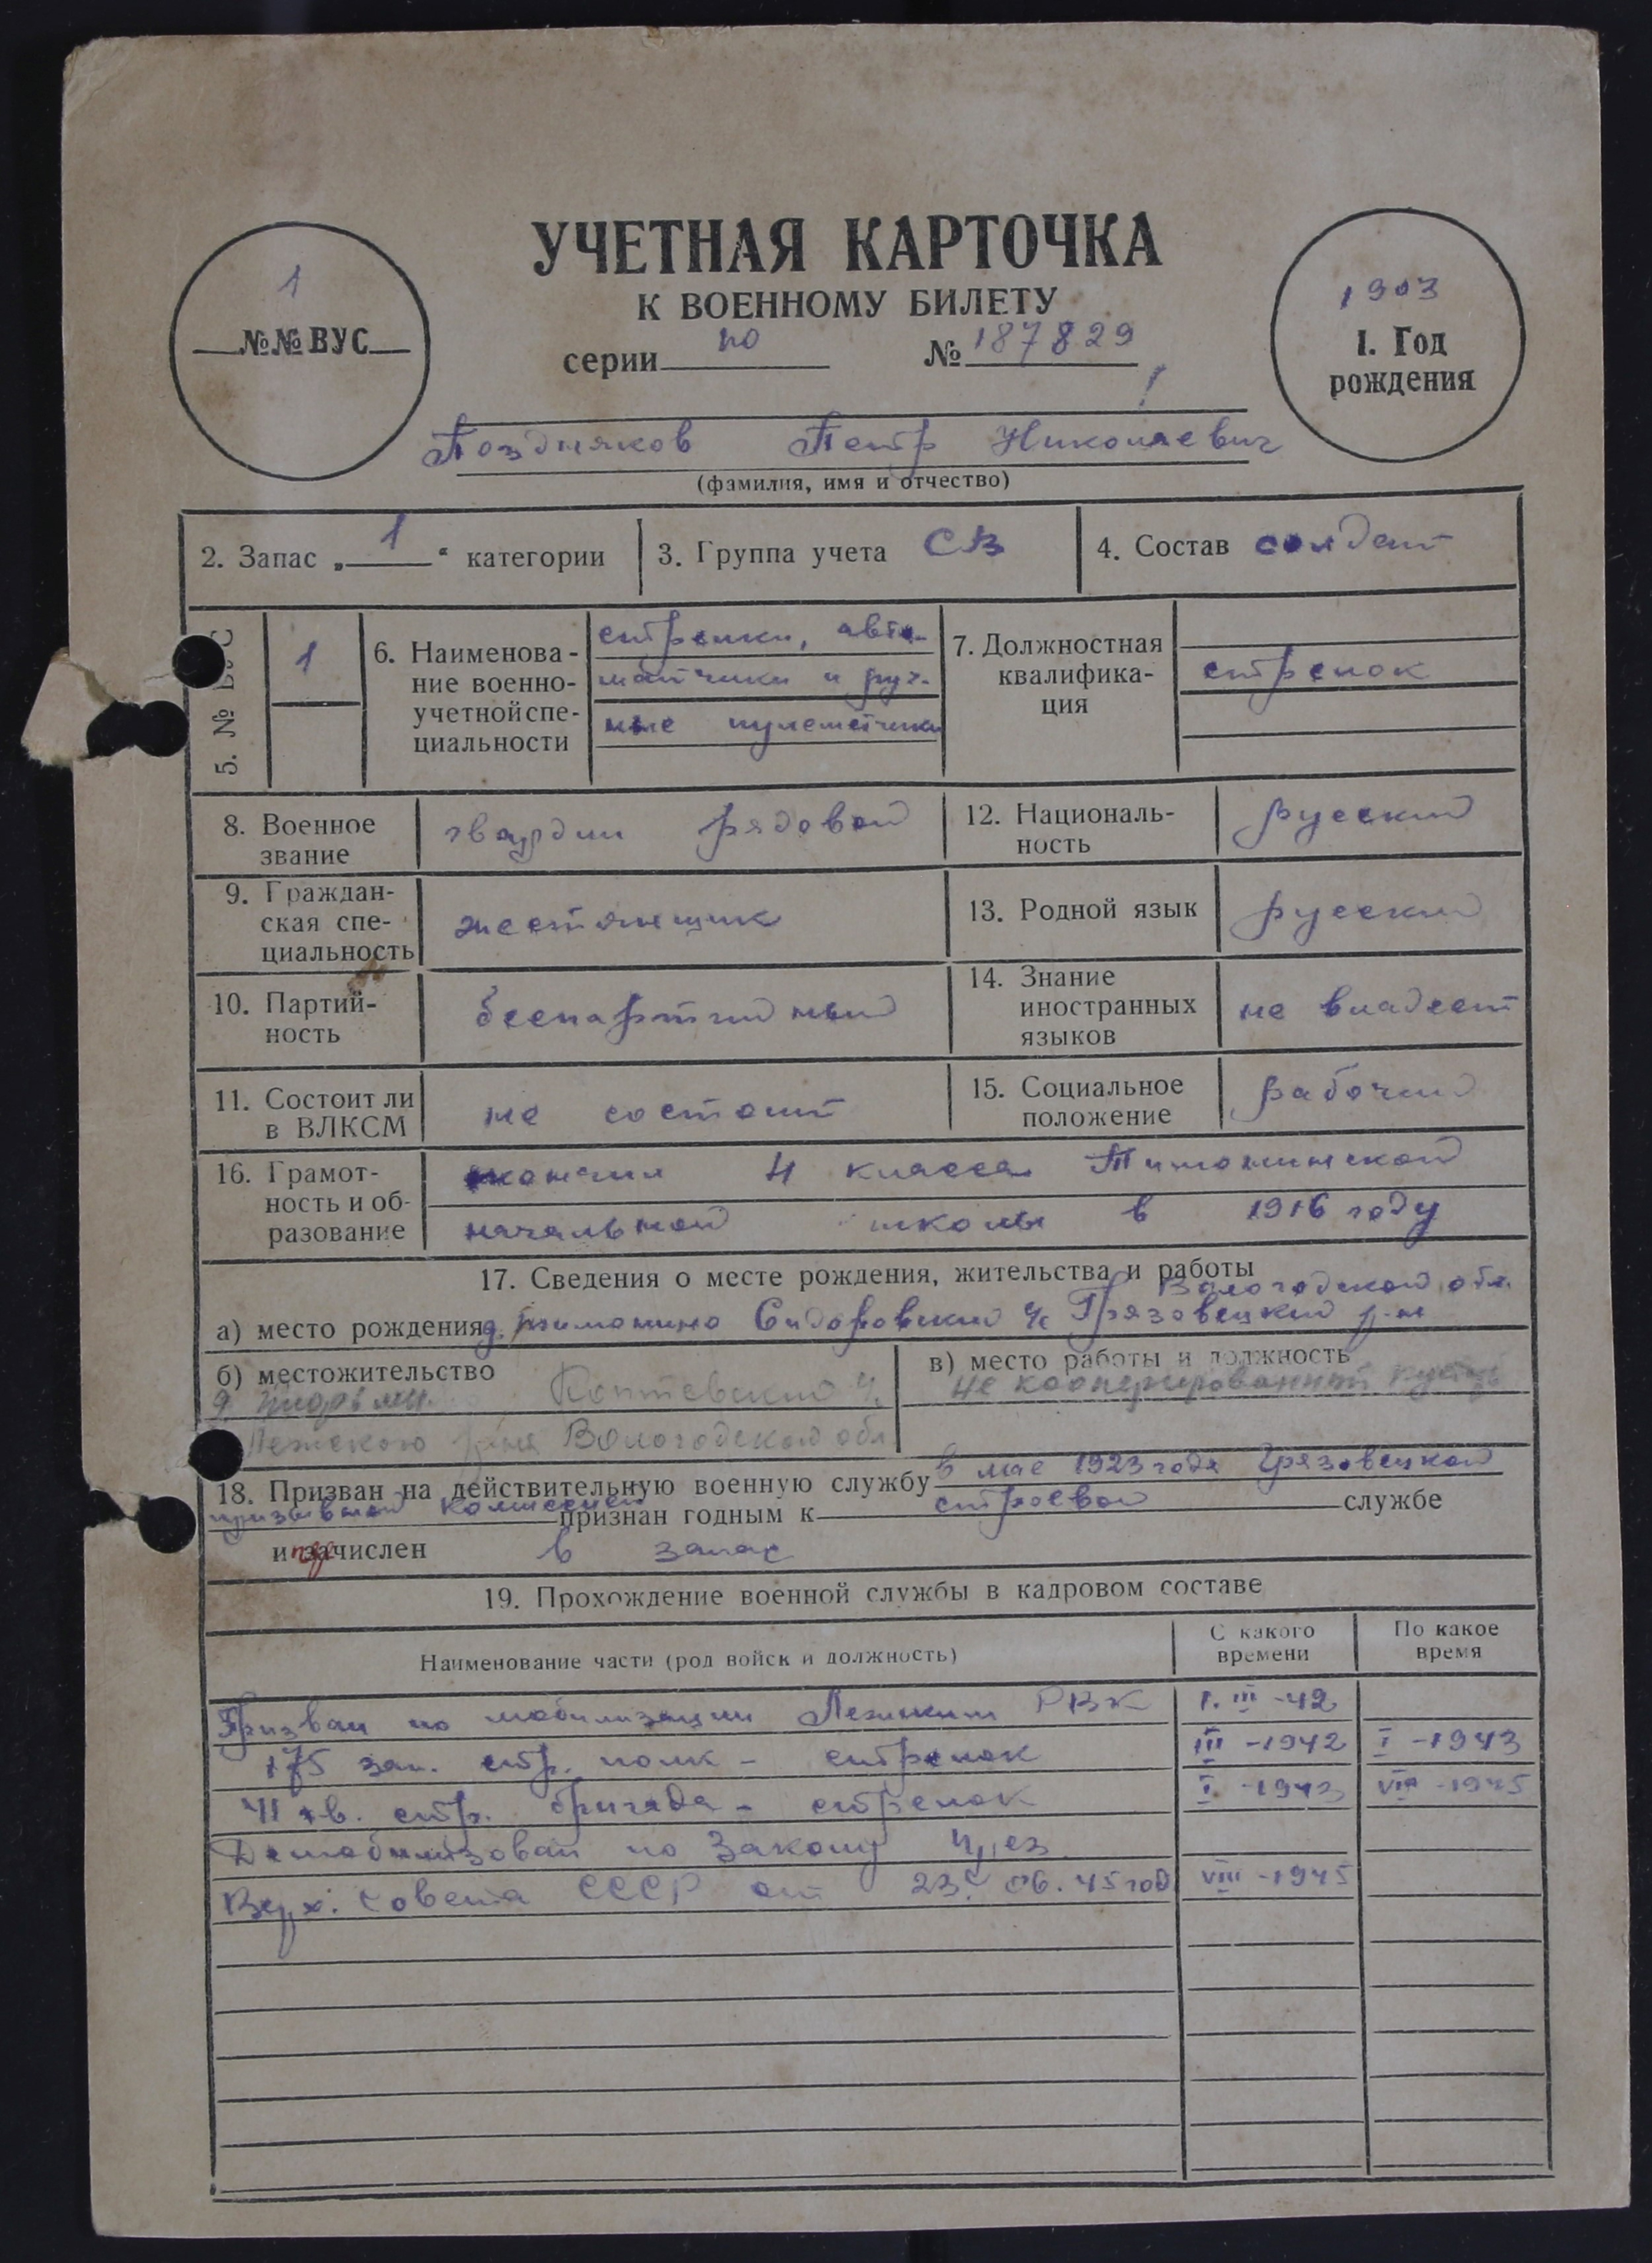 УЧЕТНАЯ КАРТОЧКА
К ВОЕННОМУ БИЛЕТУ
1
№№ ВУС
серии ПО № 187829
1903
1. Год
рождения
Поздняков Петр Николаевич
(фамилия, имя и отчество)
2. Запас „ 1 “ категории
3. Группа учета СВ
4. Состав солдат
5. № ВУС
1
6. Наименова-
ние военно-
учетной спе-
циальности
стрелки, авто-
матчики и руч-
ные пулеметчики
7. Должностная
квалифика-
ция
стрелок
8. Военное
звание
гвардии рядовой
12. Националь-
ность
русский
9. Граждан-
ская спе-
циальность
жестянщик
13. Родной язык
русский
10. Партий-
ность
беспартийный
14. Знание
иностранных
языков
не владеет
11. Состоит ли
в ВЛКСМ
не состоит
15. Социальное
положение
рабочий
16. Грамот-
ность и об-
разование
окончил 4 класса Тимонинской
начальной школы в 1916 году
17. Сведения о месте рождения, жительства и работы
Вологодской обл.
а) место рождения д. Тимонино Сидоровский с/с Грязовецкий р-н
б) местожительство
д. Коптевский с/с
Лежского р-на Вологодской обл.
в) место работы и должность
не кооперированный кустарь
18. Призван на действительную военную службу в мае 1923 года Грязовецкой
призывной комиссией признан годным к строевой службе
и зачислен в запас
19. Прохождение военной службы в кадровом составе
Наименование части (род войск и должность)
С какого
времени
По какое
время
Призван по мобилизации Лежским РВК 1. III -42
175 зап. стр. полк - стрелок III -1942 I -1943
41 гв. стр. бригада - стрелок I -1943 VIII -1945
Демобилизован по Закону
Верх. Совета СССР от 23. 06. 45 год VIII -1945